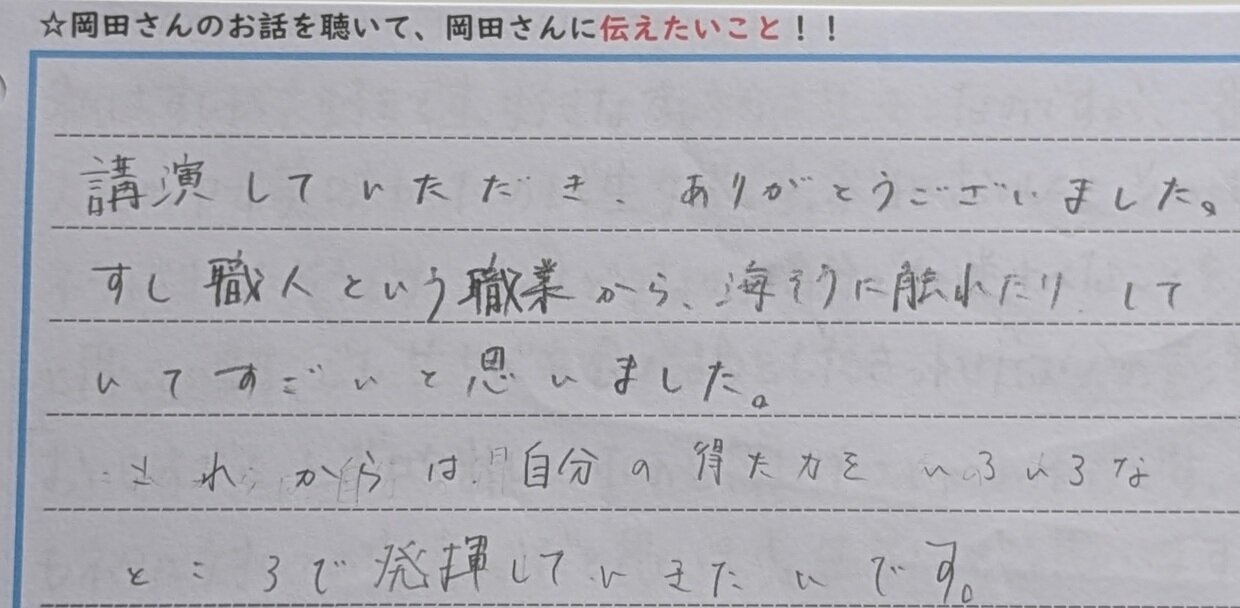 ☆岡田さんのお話を聴いて、岡田さんに伝えたいこと！！
講演していただき、ありがとうございました。
すし職人という職業から、海そうに触れたりして
いてすごいと思いました。
これからは自分の得た力をいろいろな
ところで発揮していきたいです。